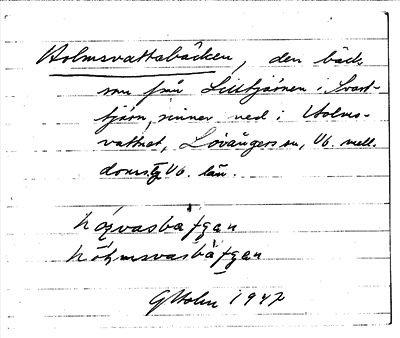 Holmsvattsbäcken, den bäck
som från Lilltjärnen i Svart-
tjärn, rinner ned i Holms-
vattnet, Lövångers sn, Vb. mell.
domsg Vb. län.
hólvasbätgan
hólmsvasbätgan
G Holm 1947